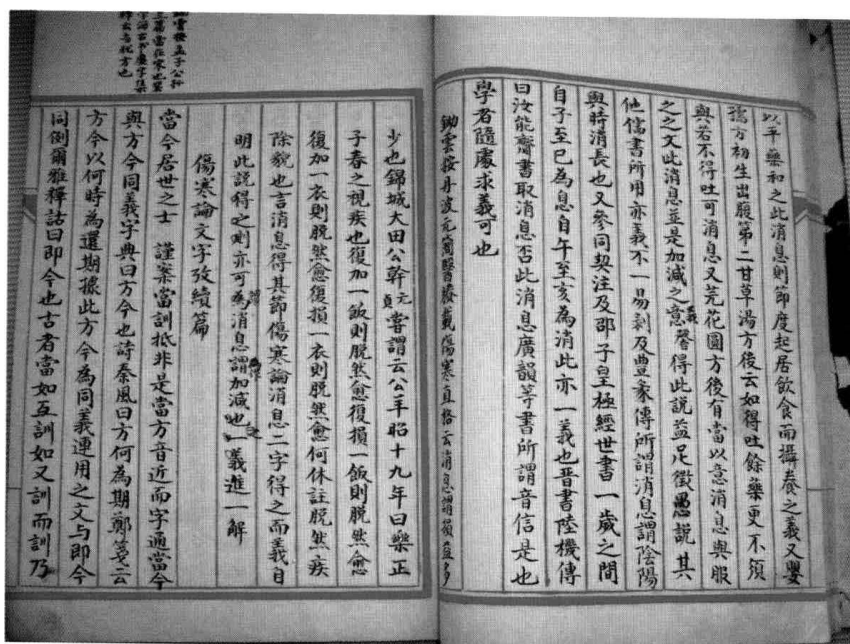 以平藥和之此消息則節度起居飲食而攝養之義又嬰
孺方初生出腹第二甘草湯方後云如得吐餘藥更不須
與若不得吐可消息又芫花圓方後有當以意消息與服
之之文此消息並是加減之意馨得此說益足徵愚說其
他儒書所用亦義不一易剝及豊彖傳所謂消息謂陰陽
與時消長也又參同契注及邵子皇極經世書一歲之間
自子至巳為息自午至亥為消此亦一義也晋書陸機傳
曰汝能齎書取消息否此消息廣韻等書所謂音信是也
學者隨處求義可也
鋤雲按丹波元簡醫賸載傷寒直格云消息謂損益多
少也錦城大田公幹元貞嘗謂云公羊昭十九年曰樂正
子春之視疾也復加一飯則脱然愈復損一飯則脱然愈
復加一衣則脱然愈復損一衣則脱然愈何休註脱然疾
除貌也言消息得其節傷寒論消息二字得之而義自
明此說得之則亦可為消息謂加減也之一義進一解
傷寒論文字攷續篇
當今居世之士 謹案當訓抵非是當方音近而字通當今
與方今同義字典曰方今也詩秦風曰方何為期鄭箋云
方今以何時為還期據此方今為同義連用之文与即今
同例爾雅釋詁曰即今也古者當如互訓如又訓而訓乃
鋤雲按孟子公孫